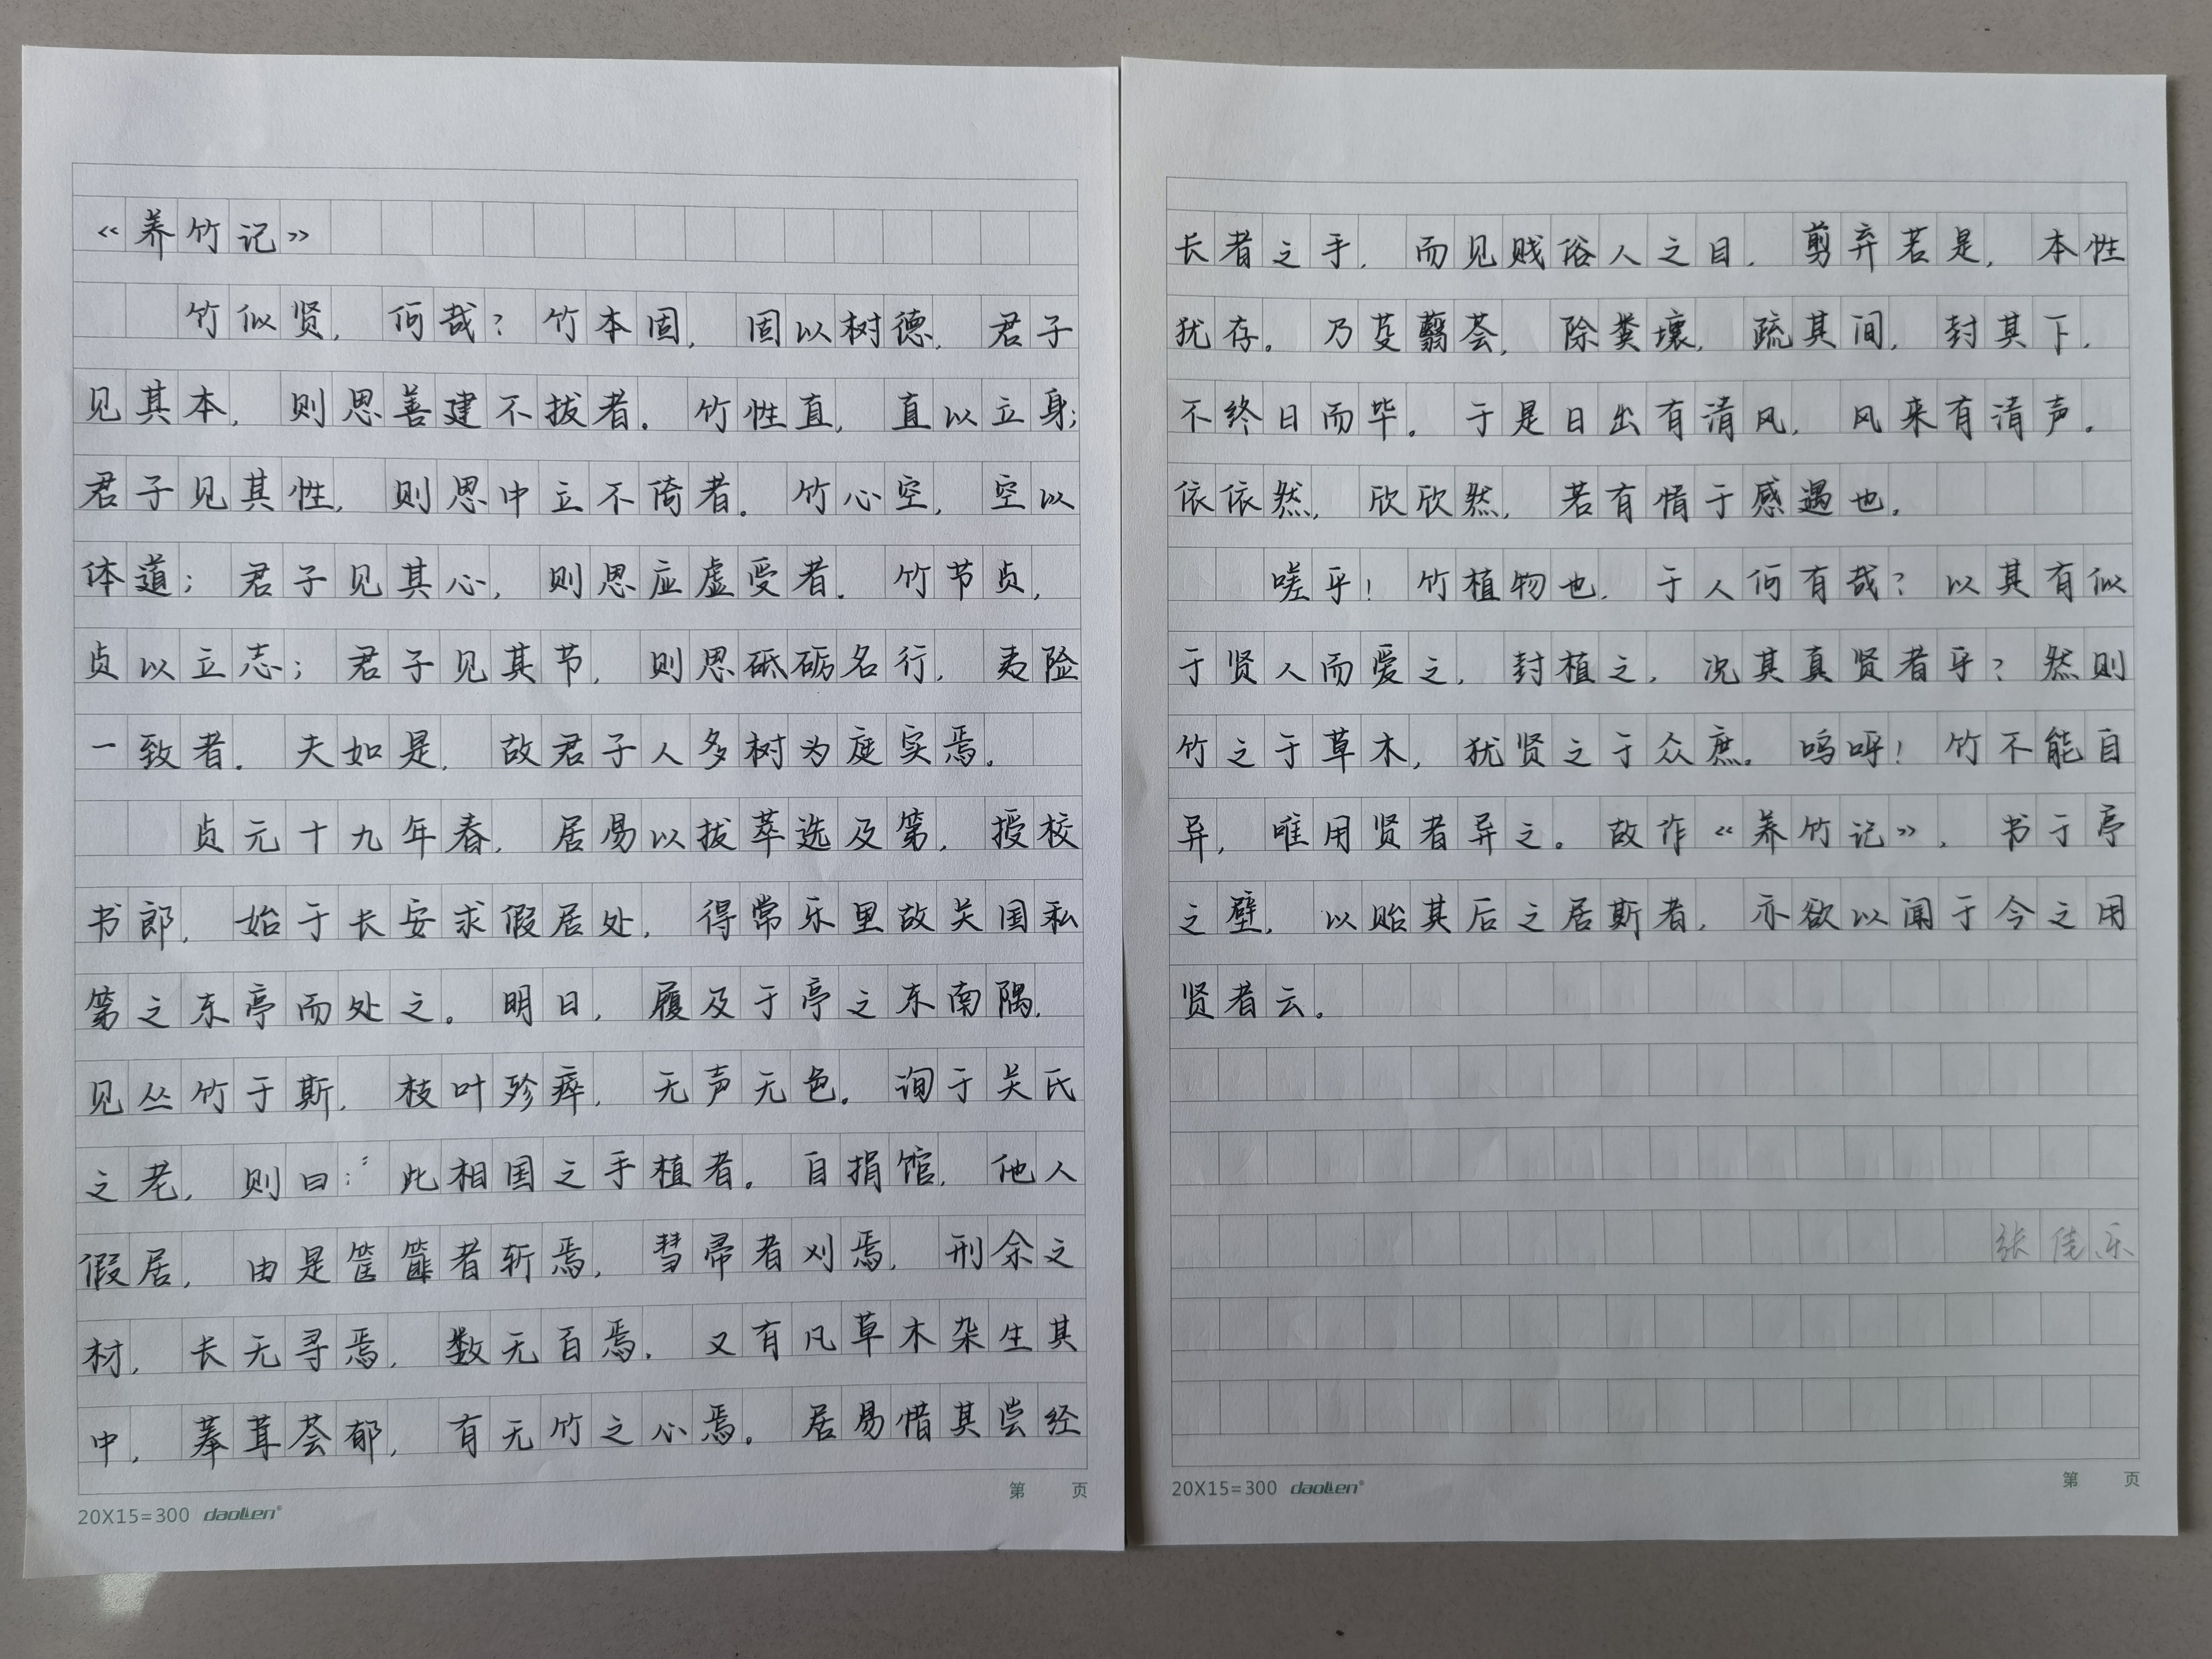 《养竹记》
竹似贤，何哉？竹本固，固以树德，君子
见其本，则思善建不拔者。竹性直，直以立身；
君子见其性，则思中立不倚者。竹心空，空以
体道；君子见其心，则思应虚受者。竹节贞，
贞以立志；君子见其节，则思砥砺名行，夷险
一致者。夫如是，故君子人多树为庭实焉。
贞元十九年春，居易以拔萃选及第，授校
书郎，始于长安求假居处，得常乐里故关国私
第之东亭而处之。明日，履及于亭之东南隅，
见丛竹于斯，枝叶殄瘁，无声无色。询于关氏
之老，则曰：“此相国之手植者。自捐馆，他人
假居，由是筐篚者斩焉，彗帚者刈焉，刑余之
材，长无寻焉，数无百焉。又有凡草木杂生其
中，菶茸荟郁，有无竹之心焉。居易惜其尝经
20X15=300 daolien®
第 页
长者之手，而见贱俗人之目，剪弃若是，本性
犹存。乃芟蘙荟，除粪壤，疏其间，封其下，
不终日而毕。于是日出有清风，风来有清声。
依依然，欣欣然，若有情于感遇也。
嗟乎！竹植物也，于人何有哉？以其有似
于贤人而爱之，封植之，况其真贤者乎？然则
竹之于草木，犹贤之于众庶。呜呼！竹不能自
异，唯用贤者异之。故作《养竹记》，书于亭
之壁，以贻其后之居斯者，亦欲以闻于今之用
贤者云。
张佳乐
20X15=300 daolien®
第 页